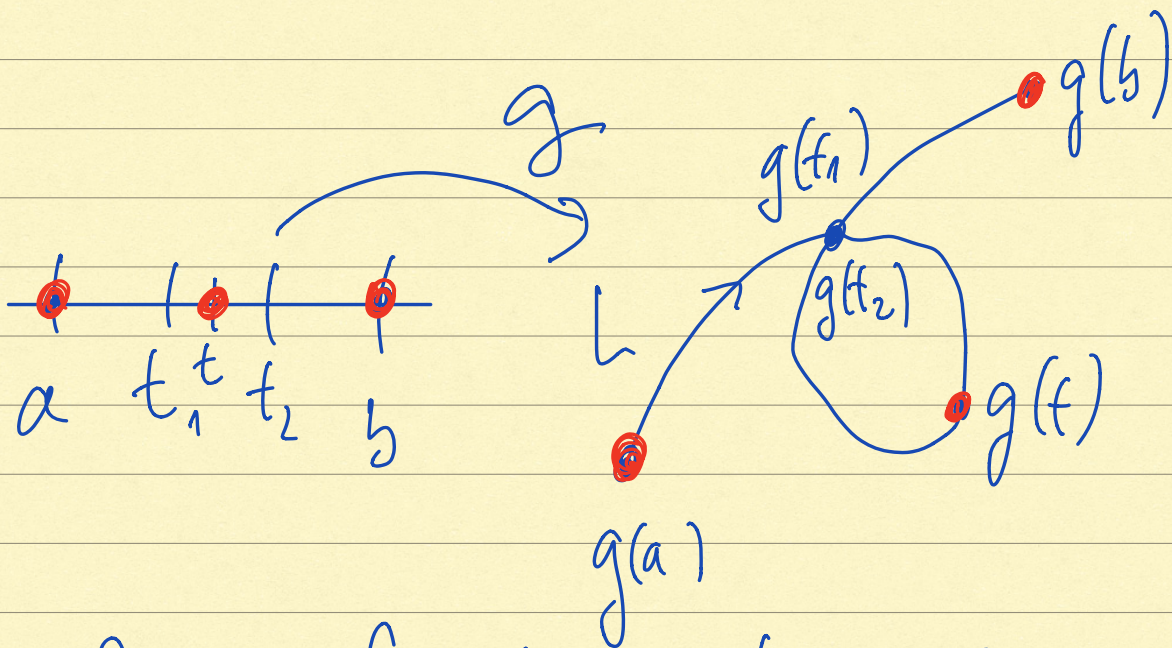 g
g(b)
g(t₁)
g(t₂)
L
a t₁ t t₂ b
g(t)
g(a)